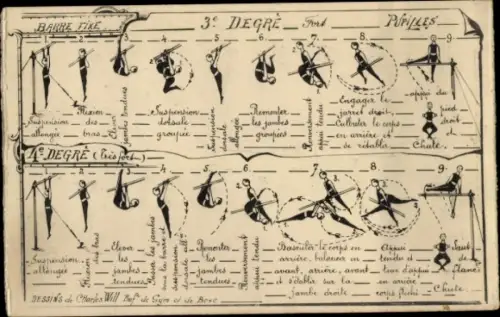 BARRE FIXE 3e DEGRÈ Fort PUPILLES
1. 2. 3. 4. 5. 6. 7. 8. 9.
Suspension
allongée
Flexion
des
bras
Elever
jambes tendues
Suspension
dorsale
groupée
Suspension
dorsale
allongée
Remonter
les jambes
groupées
Renversement
appui tendu
Engager le
jarret droit,
Calbuter le corps
en arrière et
se rétablir
appui du
pied
droit
et
Chute.
4e DEGRÈ (très fort)
2. 3. 4. 5. 6. 7. 8. 9.
Suspension
allongée
Flexion des bras
Elever
les
jambes
tendues
Passer les jambes
sous la barre et
suspension
dorsale all.
Remonter
les
jambes
tendues
Renversement
appui tendu
Basculer le corps en
arrière, balancer en
avant, arrière, avant
et s'établir sur la
jambe droite
Appui
tendu et
tour d'appui
en arrière
corps fléchi
Saut
de
Flanc
Chute
DESSINS de Charles Will Prof. de Gym et de Boxe